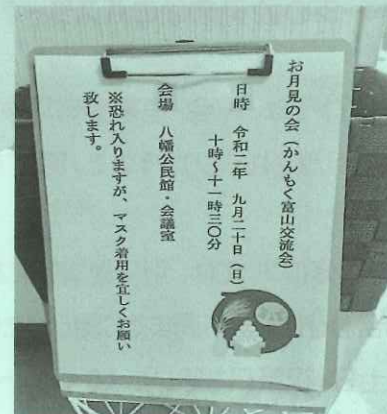 お月見の会（かんもく富山交流会）
日時　令和二年　九月二十日（日）
十時～十一時三〇分
会場　八幡公民館・会議室
※恐れ入りますが、マスク着用を宜しくお願い
致します。